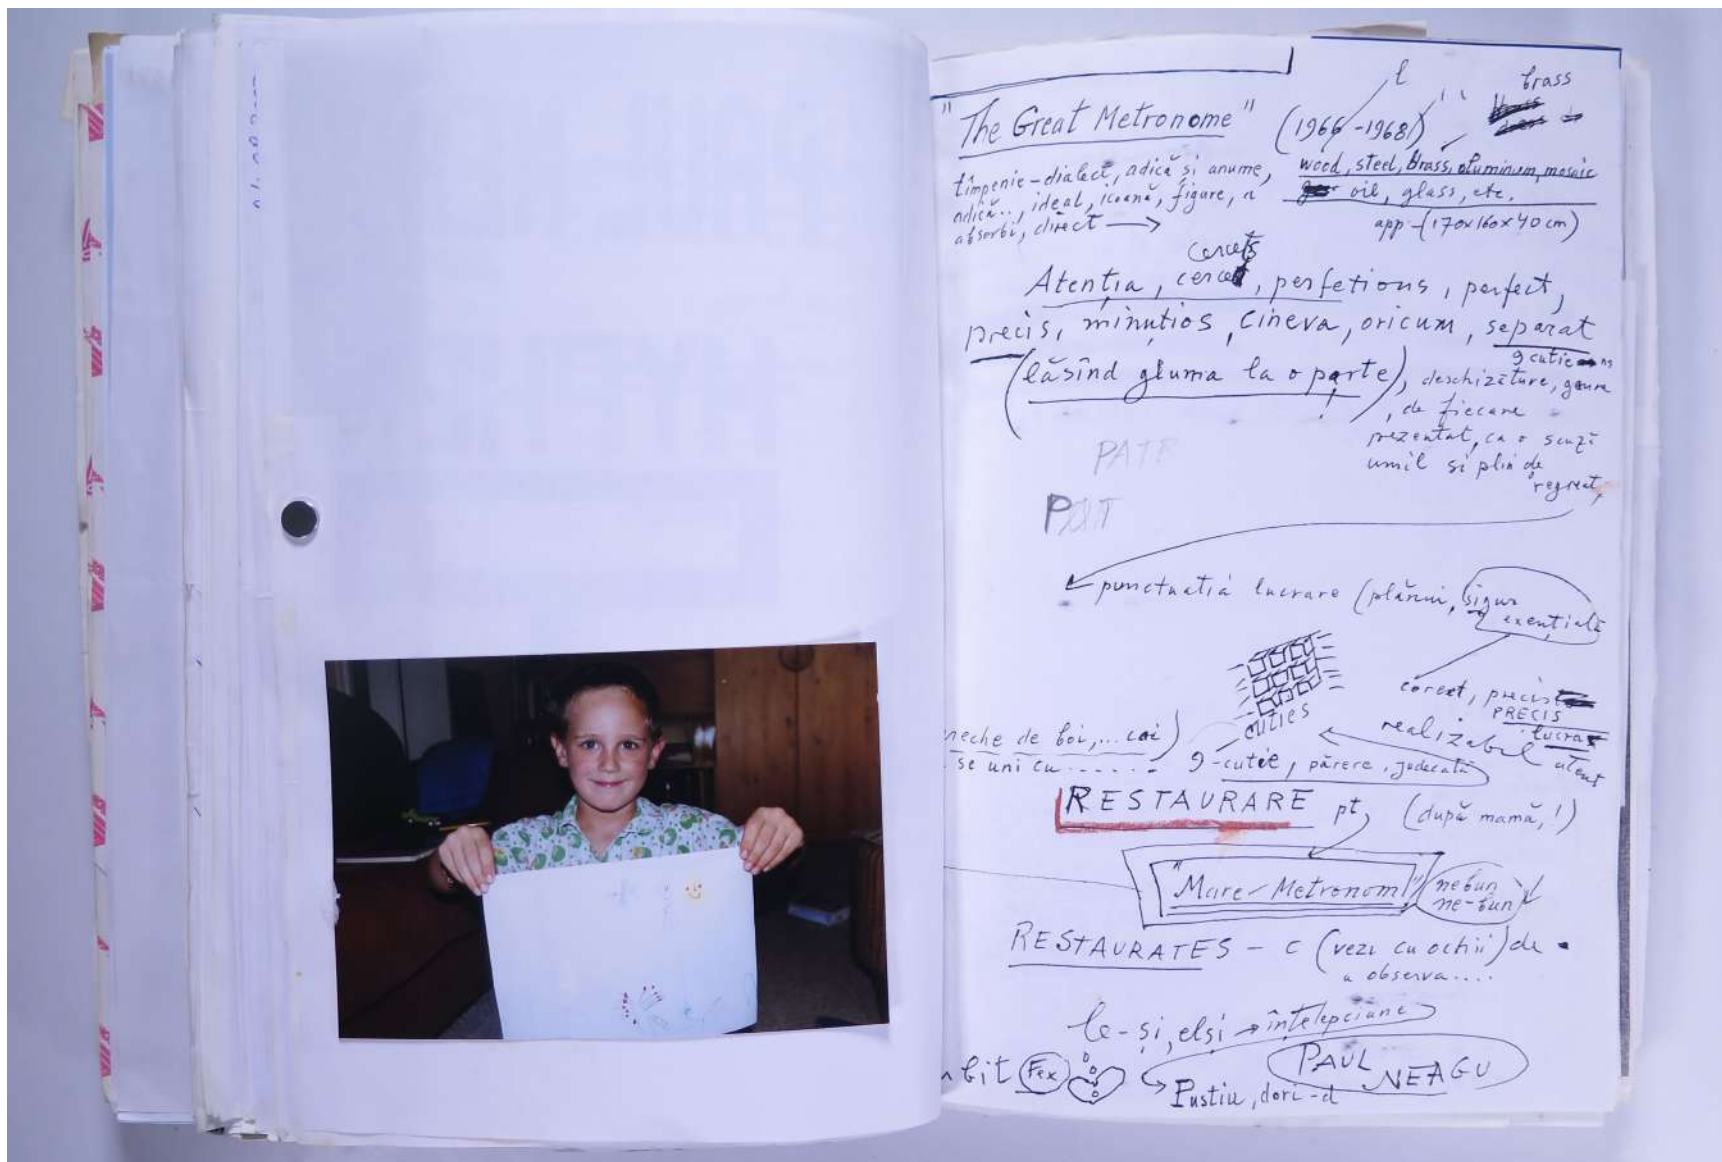 "The Great Metronome" (1966-1968)
brass
wood, steel, brass, aluminum, mosaic
oil, glass, etc.
app-(170x160x40 cm)
tîmpenie-dialect, adică și anume,
adică.., ideal, icoană, figure, a
absorbi, direct
cercets
Atenția, perfetions, perfect,
precis, minuțios, cineva, oricum, separat
9 cutie
(lăsînd gluma la o parte), deschizăture, gaura
, de fiecare
prezentat, ca o scuză
umil si plin de
regreat,
PATR
PAT
punctuatiá lucrare (plănui, sigur
exențială
corext, precis
PRECIS
lucrat
realizabil atent
cuties
neche de boi,... coi)
se uni cu
9-cutie, părere, judecată
RESTAURARE pt, (după mamă, !)
"Mare-Metronom"
nebun
ne-bun
RESTAURATES - c (vezi cu ochii) de
a observa....
le-și, elși → înțelepciune
bit Fex
PAUL
NEAGU
Pustiu, dori-d